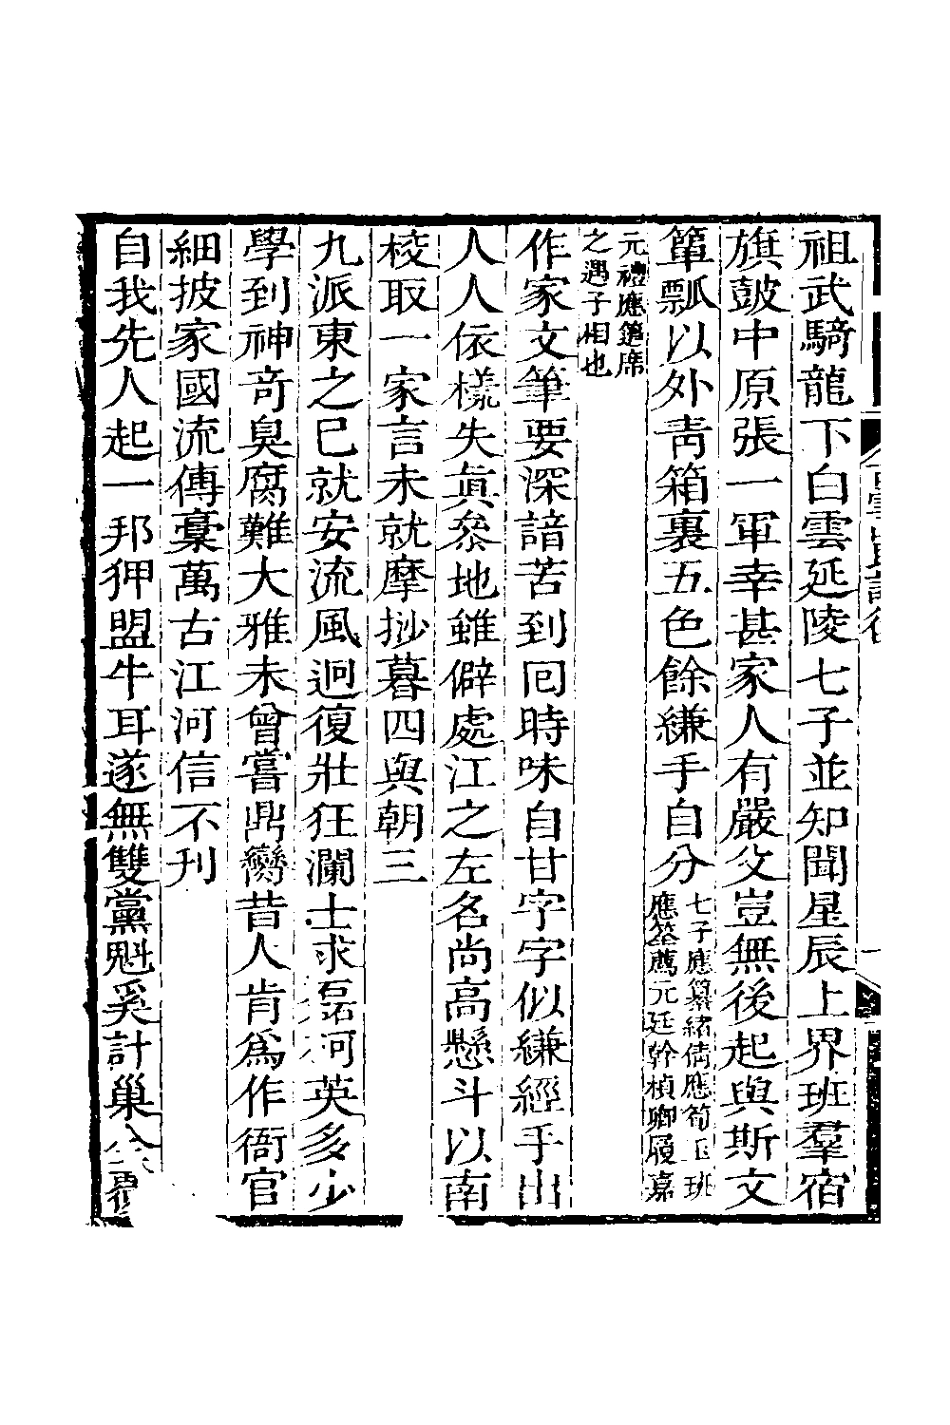 祖武騎龍下白雲延陵七子並知聞星辰上界班羣宿
旗鼓中原張一軍幸甚家人有嚴父豈無後起與斯文
簞瓢以外青箱裏五色餘縑手自分七子應纂緒倩應筍玉班
應筌薦元廷幹楨卿履嘉
元禮應籩席
之遇子相也
作家文筆要深諳苦到囘時味自甘字字似縑經手出
人人依樣失眞叅地雖僻處江之左名尚高懸斗以南
校取一家言未就摩挱暮四與朝三
九派東之已就安流風迴復壯狂瀾士求磊砢英多少
學到神奇臭腐難大雅未曾嘗鼎臠昔人肯爲作衙官
細披家國流傳稾萬古江河信不刋
自我先人起一邦狎盟牛耳遂無雙黨魁奚計巢